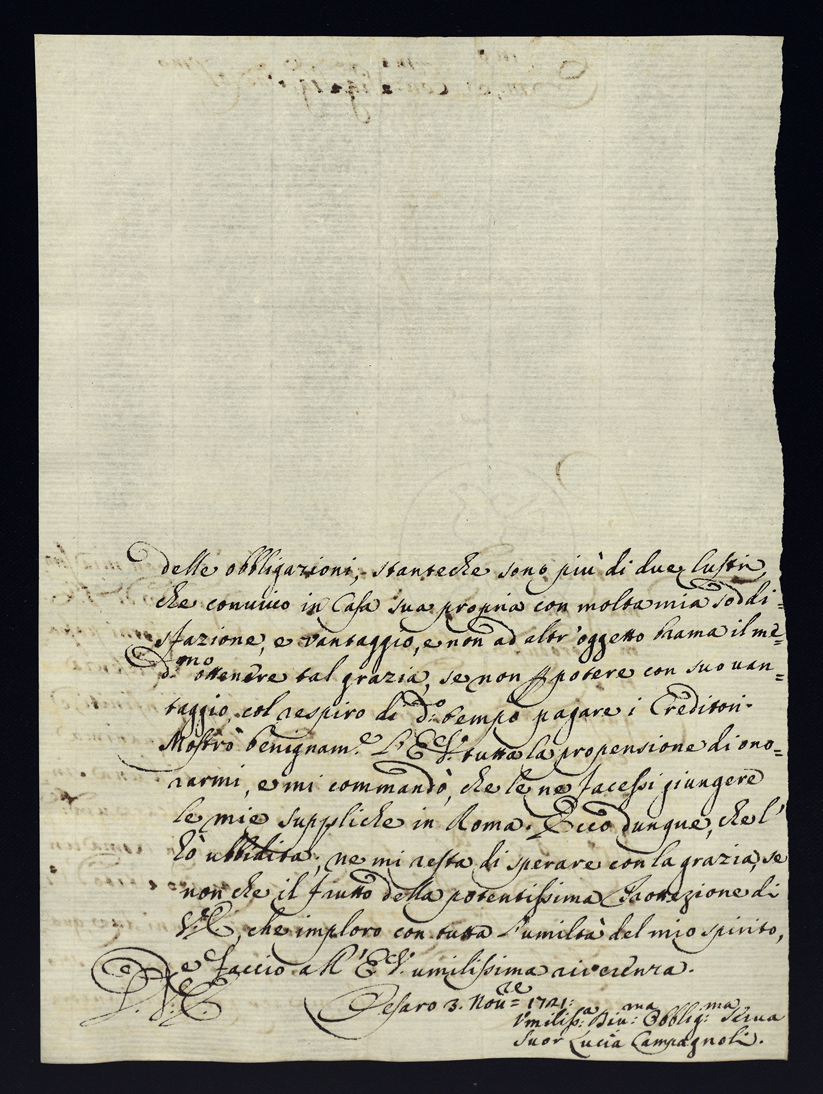 delle obbligazioni, stanteche sono più di due lustri,
che convivo in Casa sua propria con molta mia soddi=
sfazione, e vantaggio, e non ad altr'oggetto brama il me=
d.mo ottenere tal grazia, se non p potere con suo van=
taggio, col respiro di d.o tempo pagare i Creditori.
Mostrò benignam.e l'E.V. tutta la propensione di ono=
rarmi, e mi commandò, che le ne facessi giungere
le mie suppliche in Roma. Ecco dunque, che l'
hò ubbidita, ne mi resta di sperare con la grazia, se
non che il frutto della potentissima Protezione di
V.E., che imploro con tutta l'umiltà del mio spirito,
e faccio all'E.V. umilissima riverenza.
D.V.E.
Pesaro 3. Nov.re 1721:
Umiliss.a Div.ma Obblig.ma Serva
Suor Lucia Campagnoli.